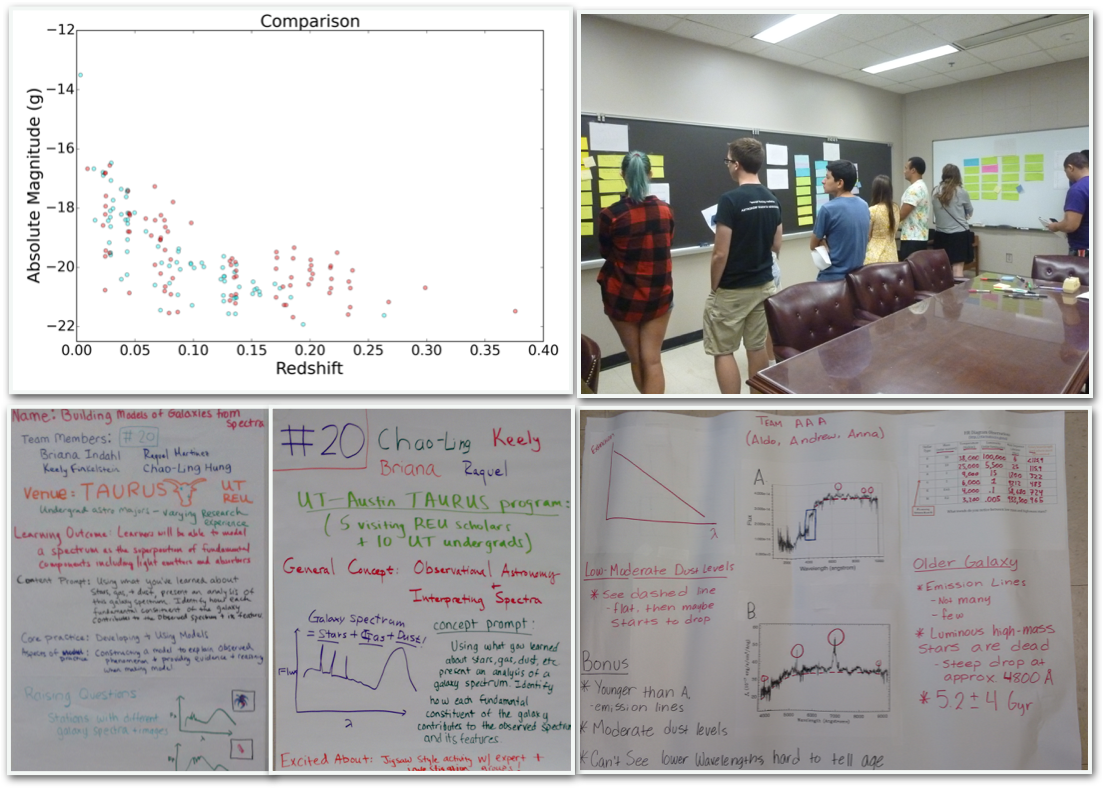 Comparison
Absolute Magnitude (g)
−12
−14
−16
−18
−20
−22
0.00 0.05 0.10 0.15 0.20 0.25 0.30 0.35 0.40
Redshift
Name: Building Models of Galaxies from
Spectra
Team Members: #20
Briana Indahl Raquel Martinez
Keely Finkelstein Chao-Ling Hung
Venue: TAURUS UT
REU
Undergrad astro majors - varying research
experience
Learning Outcome: Learners will be able to model
a spectrum as the superposition of fundamental
components including light emitters and absorbers
Content Prompt: Using what you've learned about
stars, gas, + dust, present an analysis of
this galaxy spectrum. Identify how each
fundamental constituent of the galaxy
contributes to the observed spectrum + its features
Core practice: Developing + Using Models
Constructing a model to explain observed
phenomenon + providing evidence + reasoning
when making model
Raising Questions
Stations with different
galaxy spectra + images
#20 Chao-Ling Keely
Briana Raquel
UT-Austin TAURUS program:
(5 visiting REU scholars
+ 10 UT undergrads)
General Concept: Observational Astronomy
+
Interpreting Spectra
Galaxy spectrum
= Stars + Gas + Dust!
Flux
λ
concept prompt:
Using what you learned
about stars, gas, dust, etc
present an analysis of a
galaxy spectrum. Identify
how each fundamental
constituent of the galaxy
contributes to the observed spectrum
and its features.
Excited About: Jigsaw style activity w/ expert +
TEAM AAA
(Aldo, Andrew, Anna)
λ
A.
Flux
Wavelength (angstrom)
B.
Wavelength (angstrom)
Low-Moderate Dust Levels
* See dashed line
- flat, then maybe
starts to drop
Bonus
* Younger than A.
- emission lines
* Moderate dust levels
* Can't See lower Wavelengths hard to tell age
Older Galaxy
* Emission Lines
- Not many
- few
* Luminous high-mass
Stars are dead
- steep drop at
approx. 4800 Å
* 5.2 ± 4 Gyr